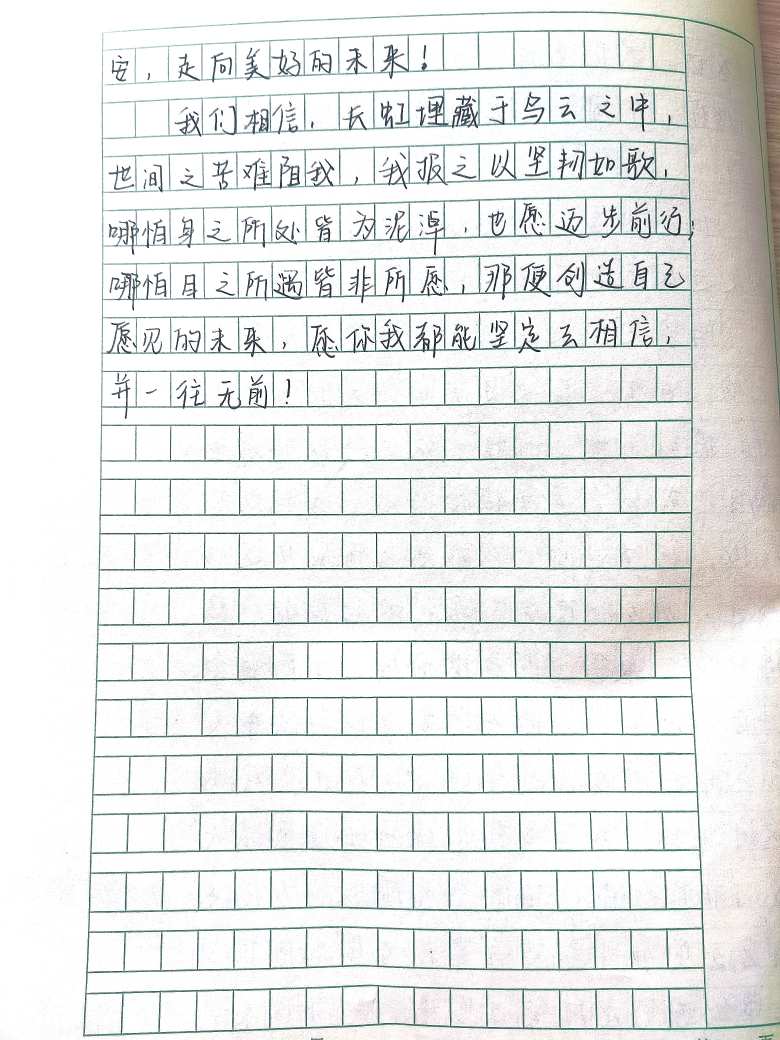 安，走向美好的未来！
我们相信，长虹埋藏于乌云之中，
世间之苦难阻我，我报之以坚韧如歌，
哪怕身之所处皆为泥淖，也愿迈步前行；
哪怕目之所遇皆非所愿，那便创造自己
愿见的未来，愿你我都能坚定去相信，
并一往无前！